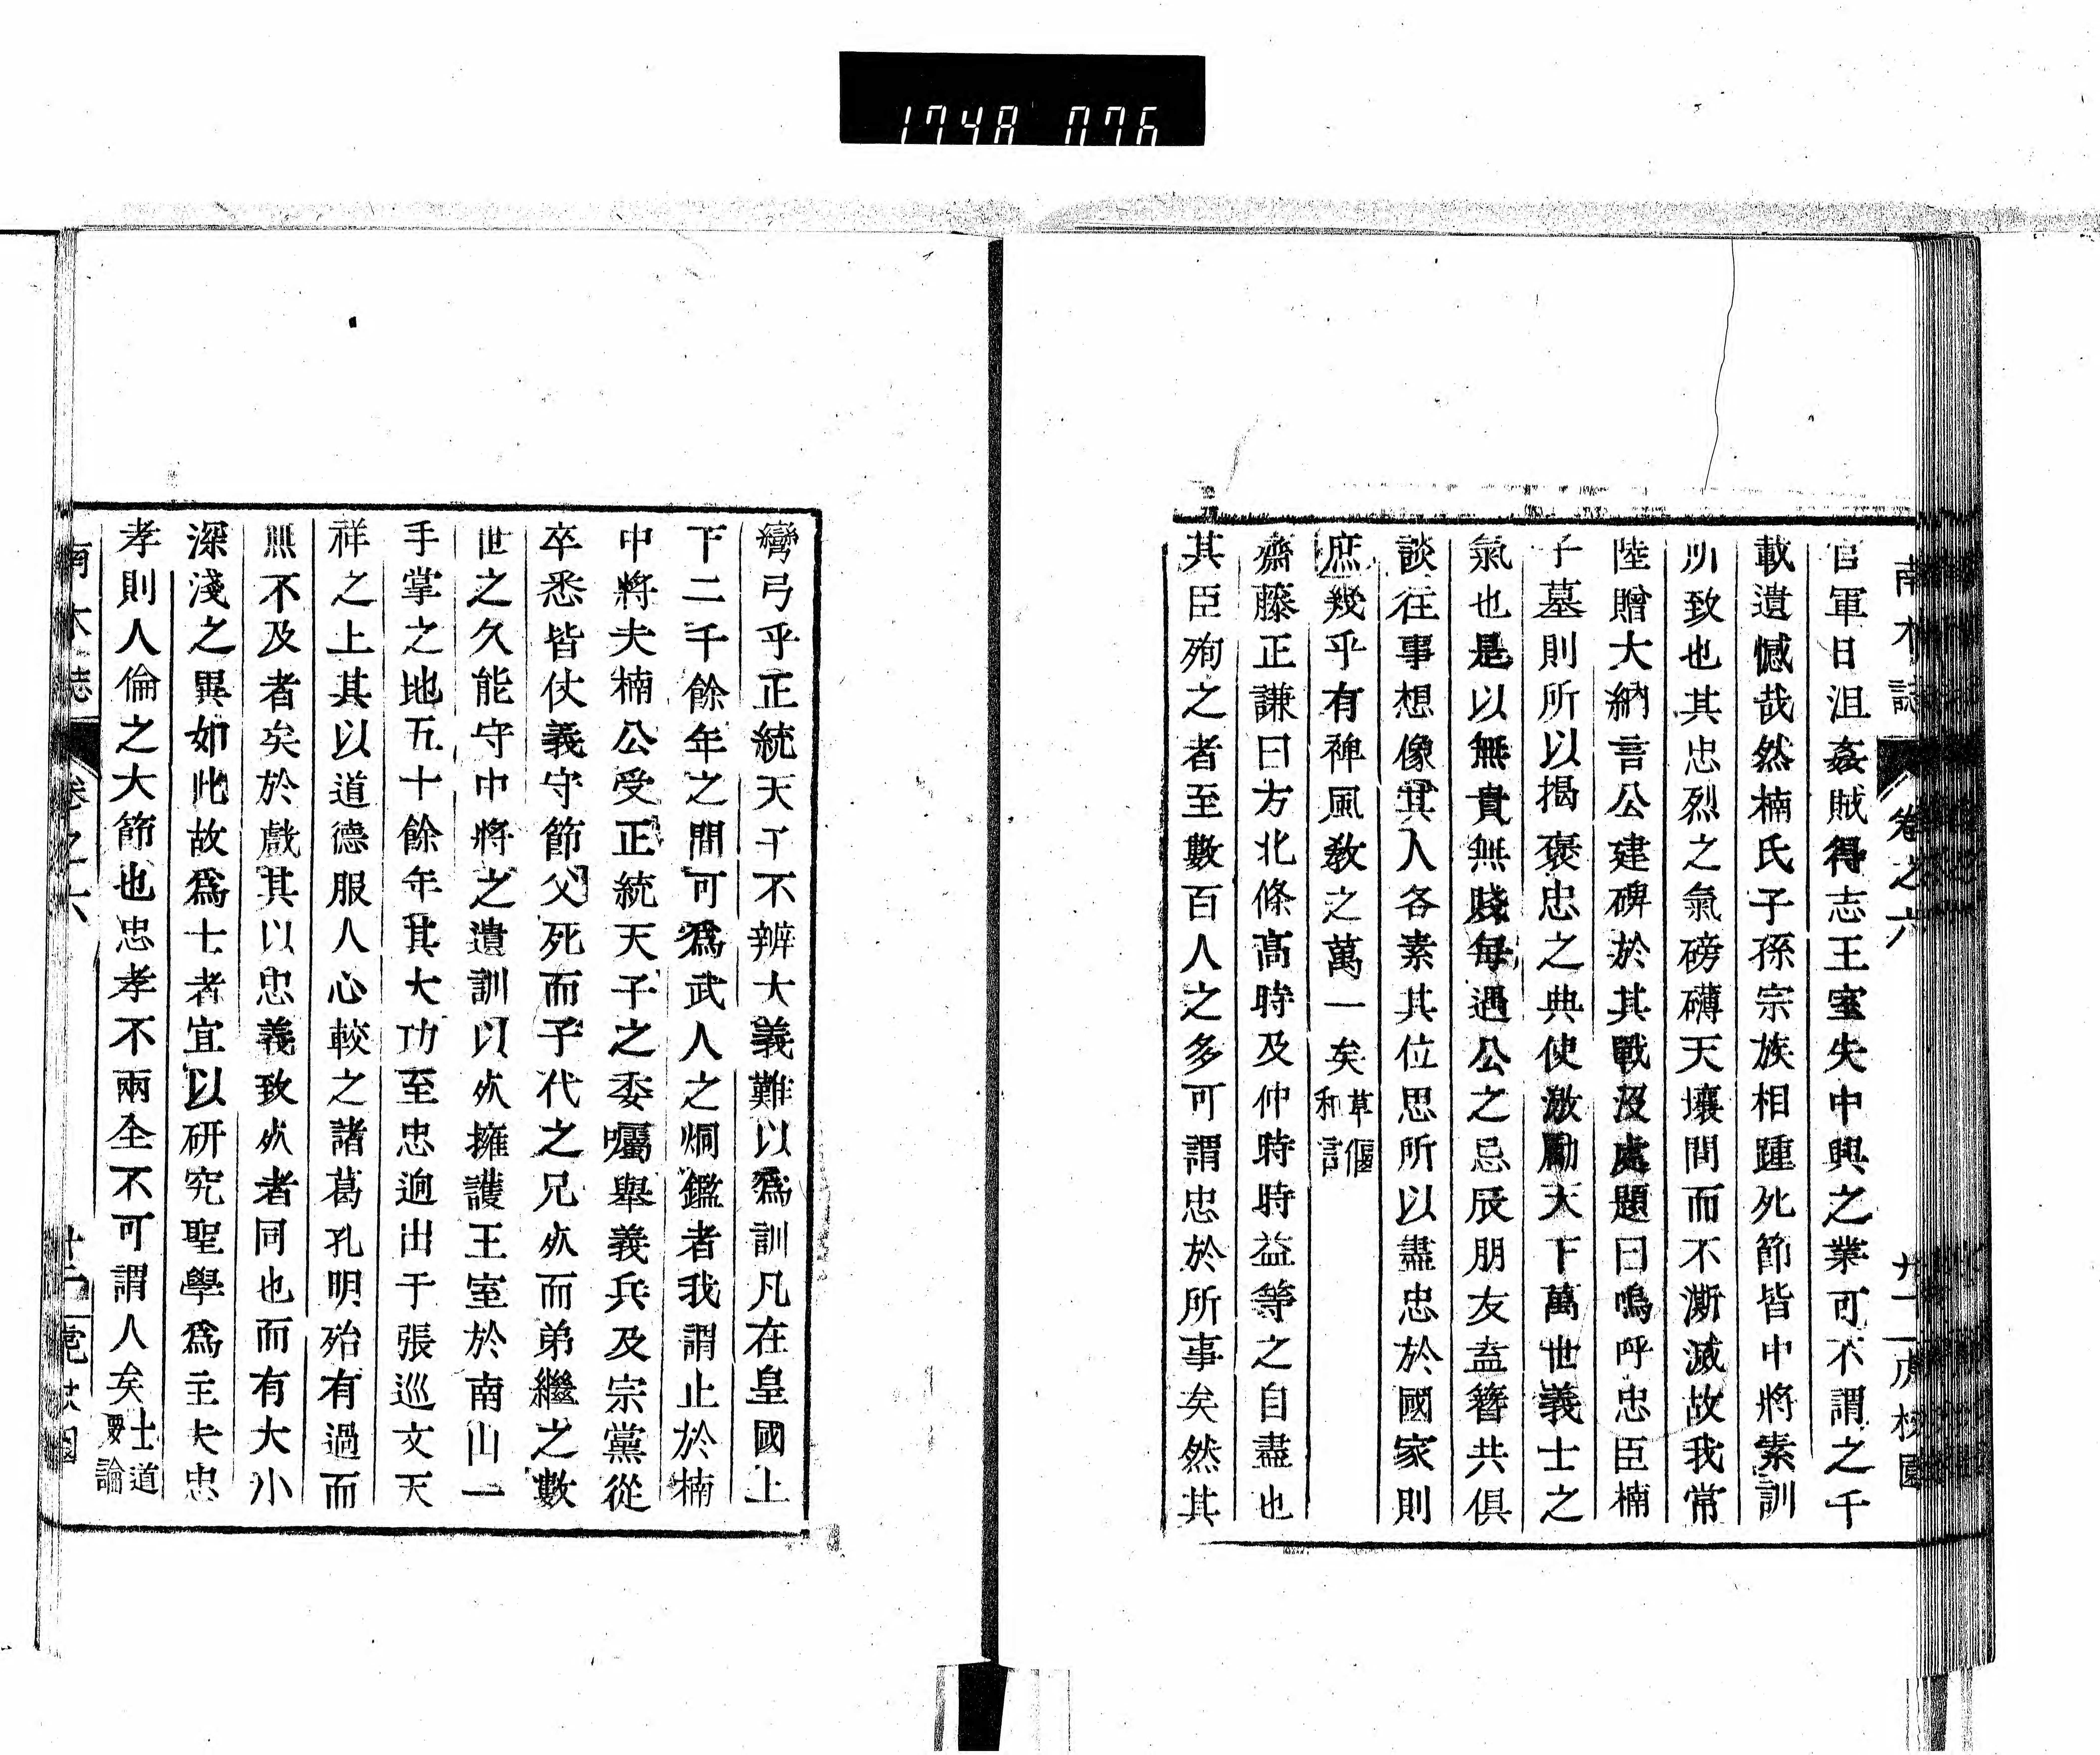 1748 076
南木誌 卷之六 廿一
官軍日沮姦賊得志王室失中興之業可不謂之千
載遺憾哉然楠氏子孫宗族相踵死節皆中將素訓
所致也其忠烈之氣磅礴天壤間而不澌滅故我常
陸贈大納言公建碑於其戰沒處題曰嗚呼忠臣楠
子墓則所以揭褒忠之典使激勵天下萬世義士之
氣也是以無貴無賤每遇公之忌辰朋友盍簪共俱
談往事想像其人各素其位思所以盡忠於國家則
庶幾乎有裨風敎之萬一矣草偃和言
齋藤正謙曰方北條高時及仲時時益等之自盡也
其臣殉之者至數百人之多可謂忠於所事矣然其
彎弓乎正統天子不辨大義難以爲訓凡在皇國上
下二千餘年之間可爲武人之炯鑑者我謂止於楠
中將夫楠公受正統天子之委囑舉義兵及宗黨從
卒悉皆仗義守節父死而子代之兄㱙而弟繼之數
世之久能守中將之遺訓以㱙擁護王室於南山一
手掌之地五十餘年其大功至忠逈出于張巡文天
祥之上其以道德服人心較之諸葛孔明殆有過而
無不及者矣於戲其以忠義致㱙者同也而有大小
深淺之異如此故爲士者宜以硏究聖學爲主夫忠
孝則人倫之大節也忠孝不兩全不可謂人矣士道要論
南木誌 卷之六